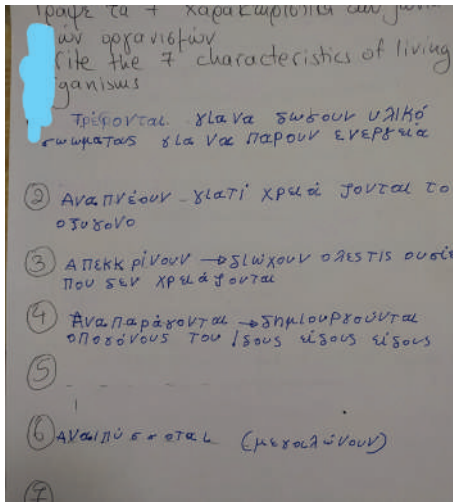 Γράψε τα 7 χαρακτηριστικά των
ών οργανισμών
rite the 7 characteristics of living
ganisms
Τρέφονται για να δώσουν υλικό
σωωματους για να παρουν ενεργεια
② Αναπνέουν - γιατί χρειά ζονται το
οξυγονο
③ Απεκκρίνουν → διώχουν ολεστις ουσίε
που δεν χρειάζονται
④ Αναπαράγονται → δημιουργούνται
απογόνους του ίδους είδους είδους
⑤ - - - -
⑥ (μεγαλώνουν)
⑦